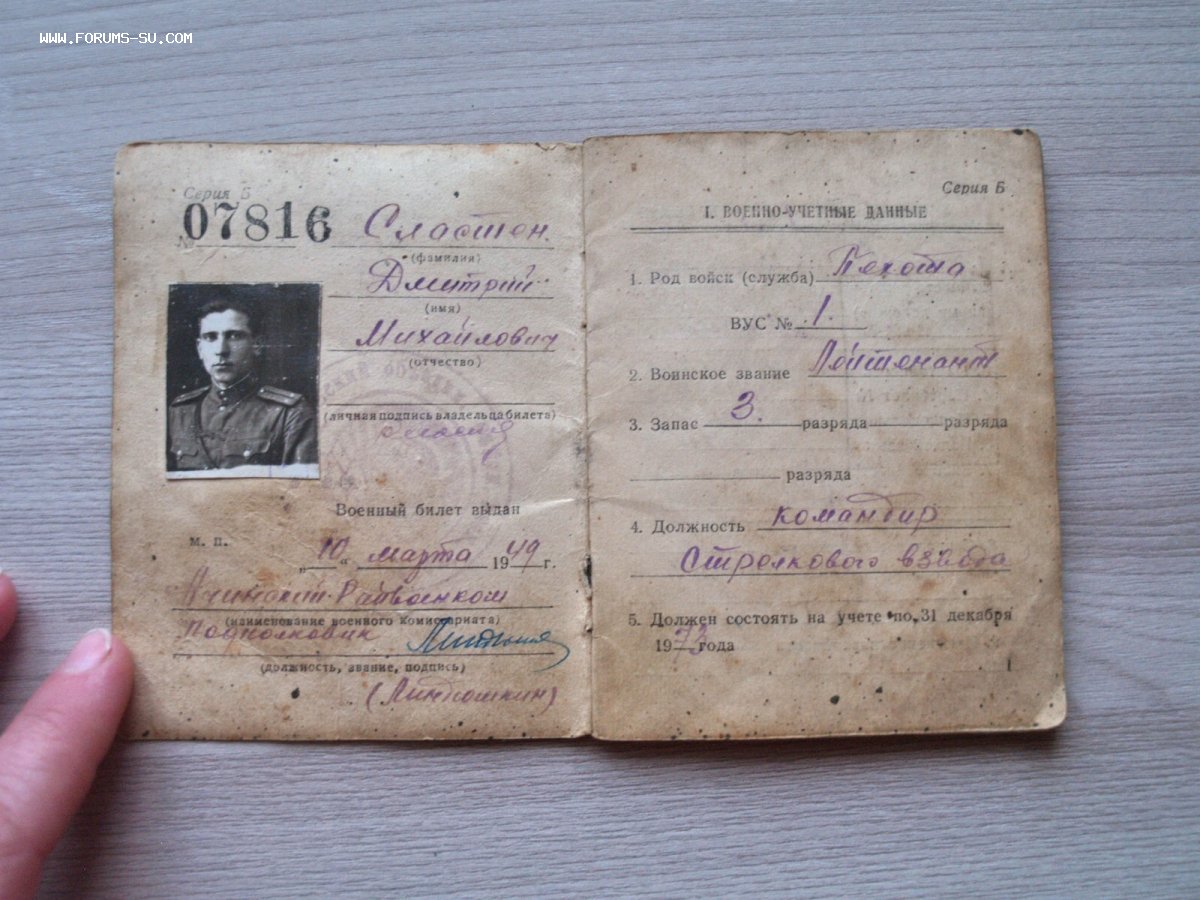 WWW.FORUMS-SU.COM
Серия Б
№ 07816 Сластен
(фамилия)
Дмитрий
(имя)
Михайлович
(отчество)
(личная подпись владельца билета)
Военный билет выдан
м. п.
„10“ марта 1949 г.
Ачинский Райвоенком
(наименование военного комиссариата)
Подполковник
(должность, звание, подпись)
Серия Б
I. ВОЕННО-УЧЕТНЫЕ ДАННЫЕ
1. Род войск (служба) Пехота
ВУС № 1.
2. Воинское звание Лейтенант
3. Запас 3. разряда разряда
разряда
4. Должность командир
Стрелкового взвода
5. Должен состоять на учете по 31 декабря
1973 года
1